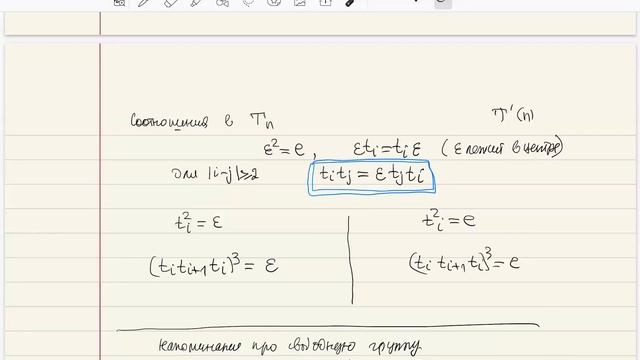 Соотношения в T_n T'(n)
ε² = e, εt_i = t_i ε (ε лежит в центре)
для |i-j| ≥ 2 t_i t_j = ε t_j t_i
t_i² = ε t_i² = e
(t_i t_{i+1} t_i)³ = ε (t_i t_{i+1} t_i)³ = e
напоминание про свободную группу